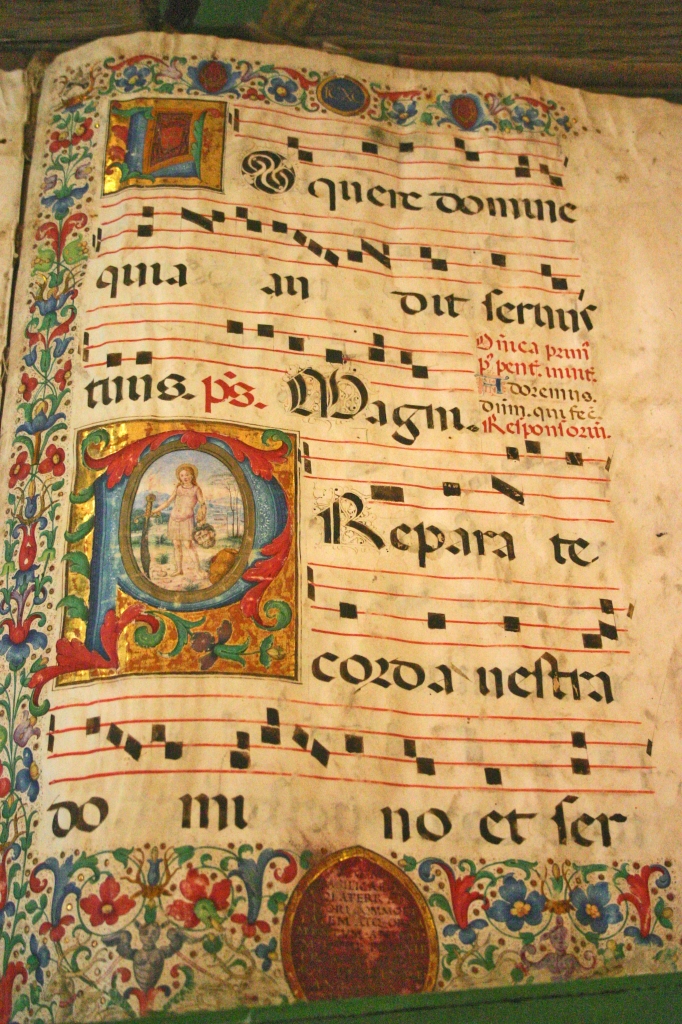 LOquere domine
quia au dit seruus
tuus. ps. Magni.
Dñica prim
pꝰ pent. inuit.
Adoremus.
dūm. qui fec̄.
Responsoriū.
PRepara te
corda uestra
do mi no et ser